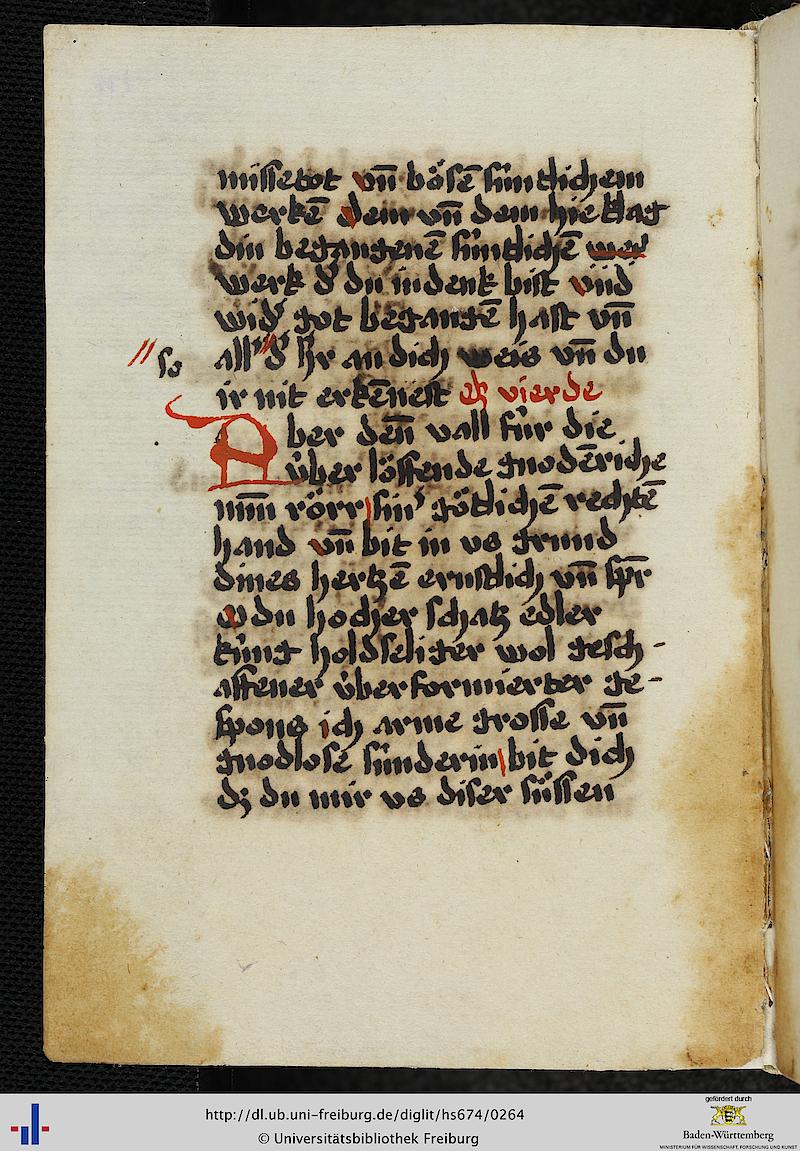 missetot vn̄ bo̍sē súntlichem
werkē dem vn̄ dem hie klag
din begangenē súntlichē wer
werk d' du indenk bist vnd
wid' got begangē hast vn̄
so all d' ir an dich weis vn̄ du
ir nit erkēnest etz vierde
Aber den̄ vall fúr die
úber löffende gnodēriche
mm̄ rörr sin' götlichē rechtē
hand vn̄ bit in us grund
dines hertzē ernstlich vn̄ spr̄
o du hocher schatz edler
kúng holdseliger wol gesch-
affener úberformierter ge-
spons ich arme grosse vn̄
gnodlose súnderin bit dich
dz du mir us diser sússen
http://dl.ub.uni-freiburg.de/diglit/hs674/0264
© Universitätsbibliothek Freiburg
gefördert durch
Baden-Württemberg
MINISTERIUM FÜR WISSENSCHAFT, FORSCHUNG UND KUNST